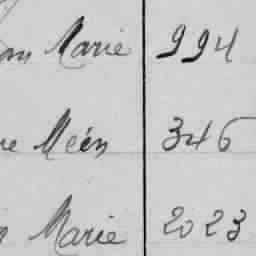 an Marie 994
re Méen 346
n Marie 2023